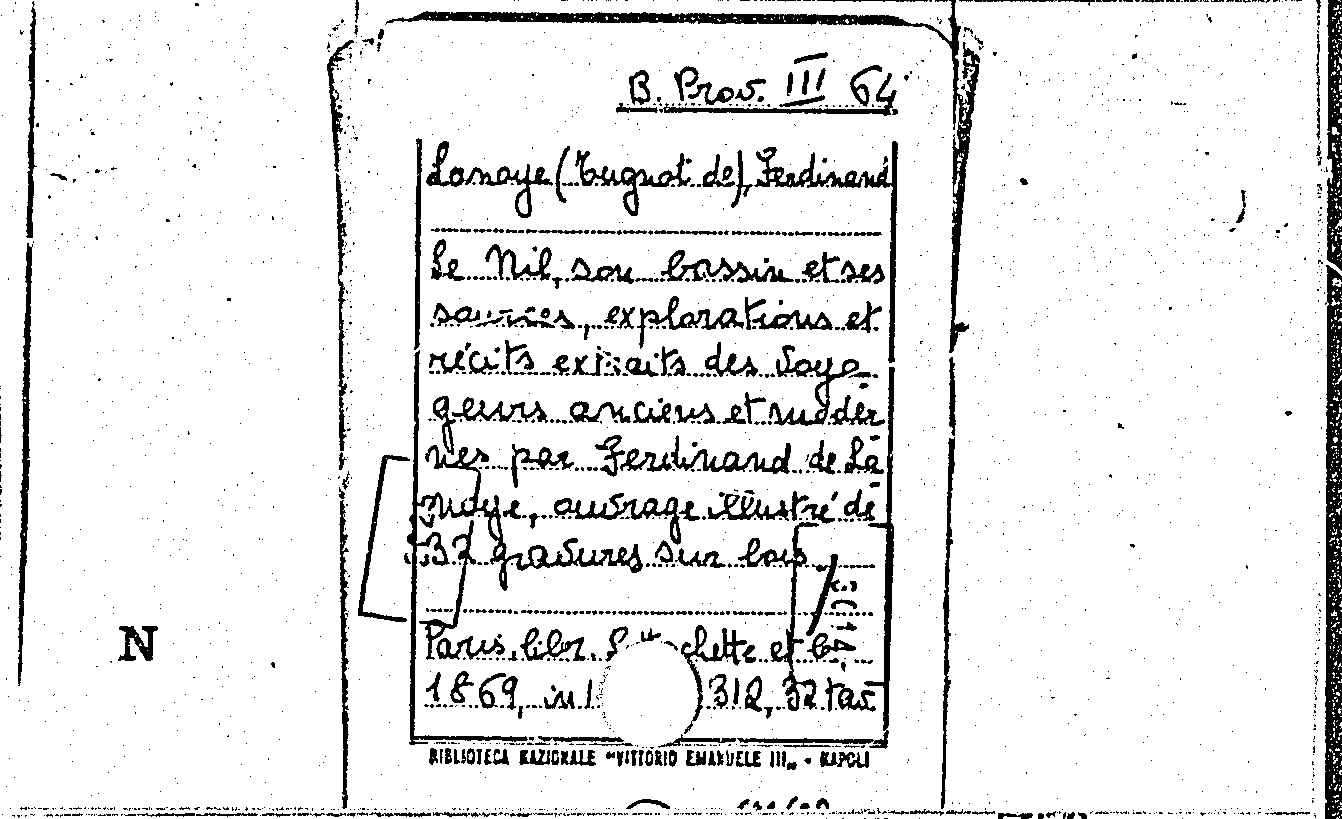 B. Prov. III 64
Lanoye (Tugnot de), Ferdinand
Le Nil, son bassin et ses
sources, explorations et
récits extraits des voya-
geurs anciens et moder-
nes par Ferdinand de La-
noye, ouvrage illustré de
32 gravures sur bois
Paris, libr. L. Hachette et C.
1869, in 1 312, 32 tav.
BIBLIOTECA NAZIONALE "VITTORIO EMANUELE III„ - NAPOLI
N